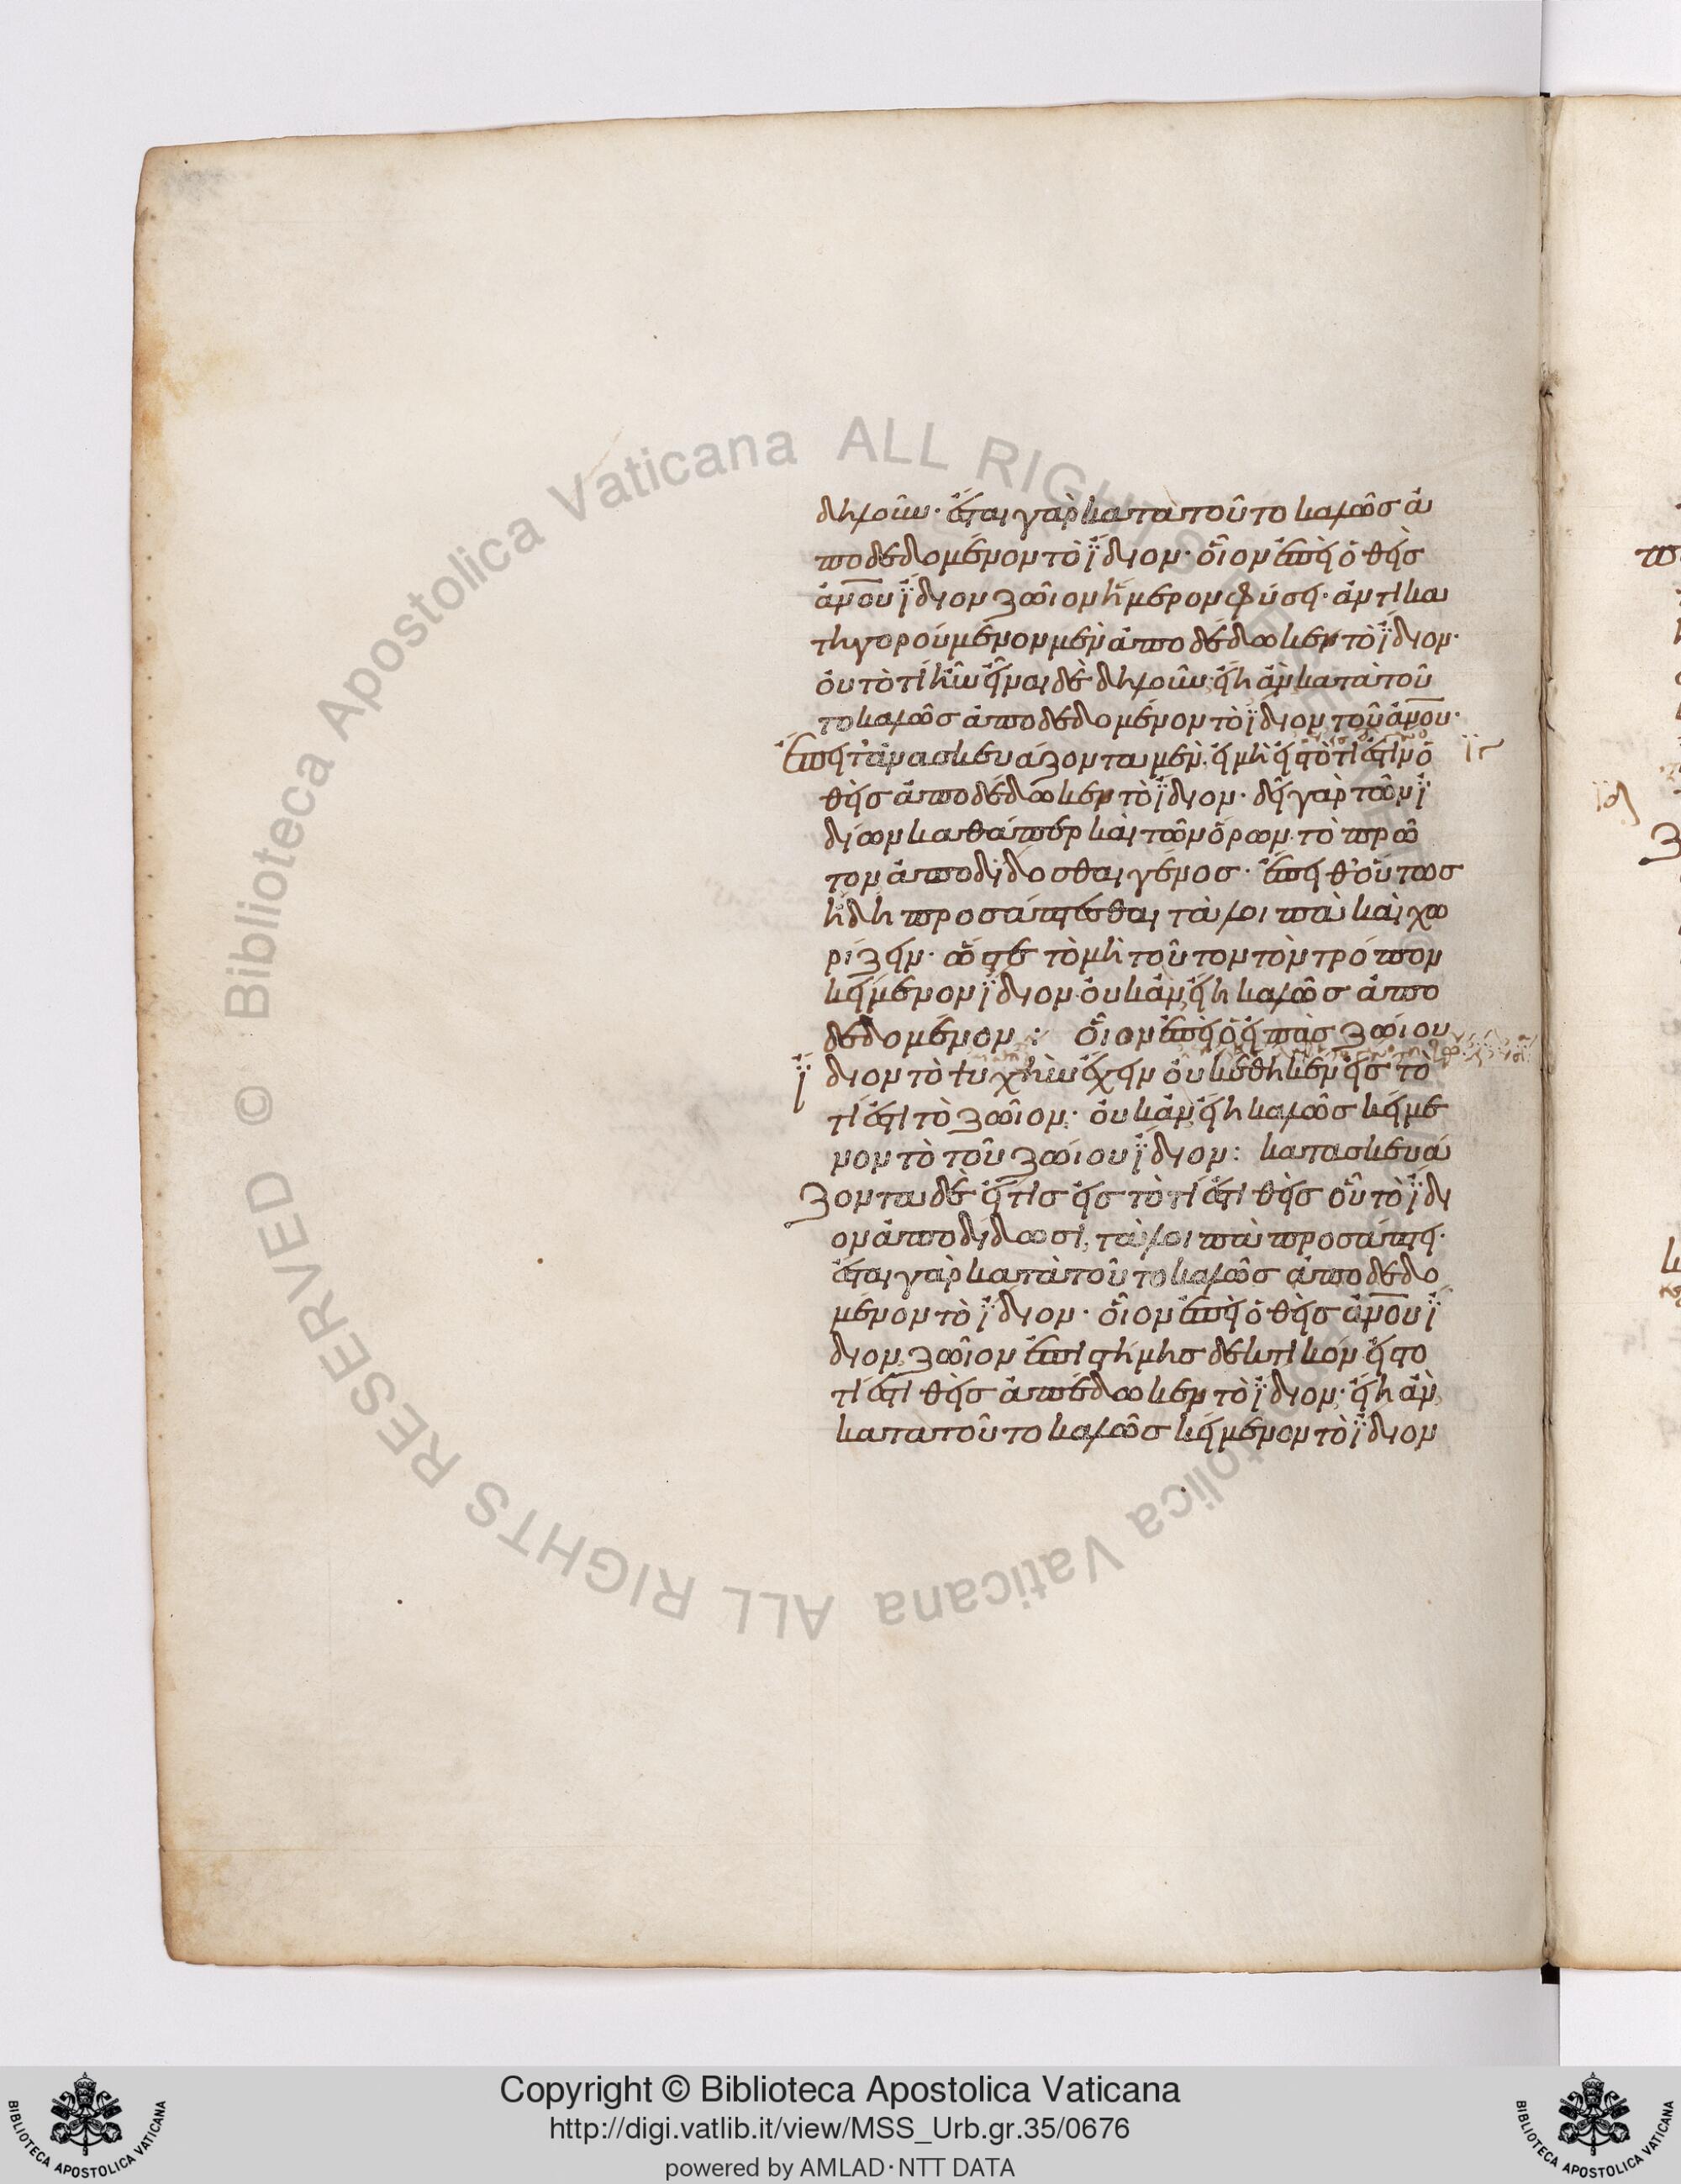 δηλοῦν· ἔσται γὰρ κατὰ τοῦτο καλῶς ἀ
ποδεδομένον τὸ ἴδιον· οἷον ἐπεὶ ὁ θεὶς
ἀνου ἴδιον ζῶιον ἥμερον φύσει· ἀντικα
τηγορούμενον μὲν ἀποδέδωκεν τὸ ἴδιον·
οὐ τὸ τί ἦν εἶναι δὲ δηλοῦν· εἴη ἂν κατὰ τοῦ
το καλῶς ἀποδεδομένον τὸ ἴδιον τοῦ ἀνου·
ἔπειτ' ἀνασκευάζοντα μέν, εἰ μὴ εἰς τὸ τί ἐστιν ὁ
θεὶς ἀποδέδωκεν τὸ ἴδιον· δεῖ γὰρ τῶν ἰ
δίων καθάπερ καὶ τῶν ὅρων τὸ πρῶ
τον ἀποδίδοσθαι γένος· ἔπειθ' οὕτως
ἤδη προσάπτεσθαι τὰ λοιπὰ καὶ χω
ρίζειν· ὥστε τὸ μὴ τοῦτον τὸν τρόπον
κείμενον ἴδιον οὐκ ἂν εἴη καλῶς ἀπο
δεδομένον : οἷον ἐπεὶ ὁ εἴπας ζώιου
ἴδιον τὸ ψυχὴν ἔχειν οὐκ ἔθηκεν εἰς τὸ
τί ἐστι τὸ ζῶιον· οὐκ ἂν εἴη καλῶς κείμε
νον τὸ τοῦ ζώιου ἴδιον : κατασκευά
ζοντα δὲ εἴ τις εἰς τὸ τί ἐστι θεὶς οὗ τὸ ἴδι
ον ἀποδίδωσι, τὰ λοιπὰ προσάπτει·
ἔσται γὰρ κατὰ τοῦτο καλῶς ἀποδεδο
μένον τὸ ἴδιον· οἷον ἐπεὶ ὁ θεὶς ἀνου ἴ
διον ζῶιον ἐπιστήμης δεκτικόν εἰς το
τί ἐστι θεὶς ἀπέδωκεν τὸ ἴδιον· εἴη ἂν
κατὰ τοῦτο καλῶς κείμενον τὸ ἴδιον
ALL RIGHTS RESERVED © Biblioteca Apostolica Vaticana
Copyright © Biblioteca Apostolica Vaticana
http://digi.vatlib.it/view/MSS_Urb.gr.35/0676
powered by AMLAD·NTT DATA
BIBLIOTECA APOSTOLICA VATICANA
BIBLIOTECA APOSTOLICA VATICANA